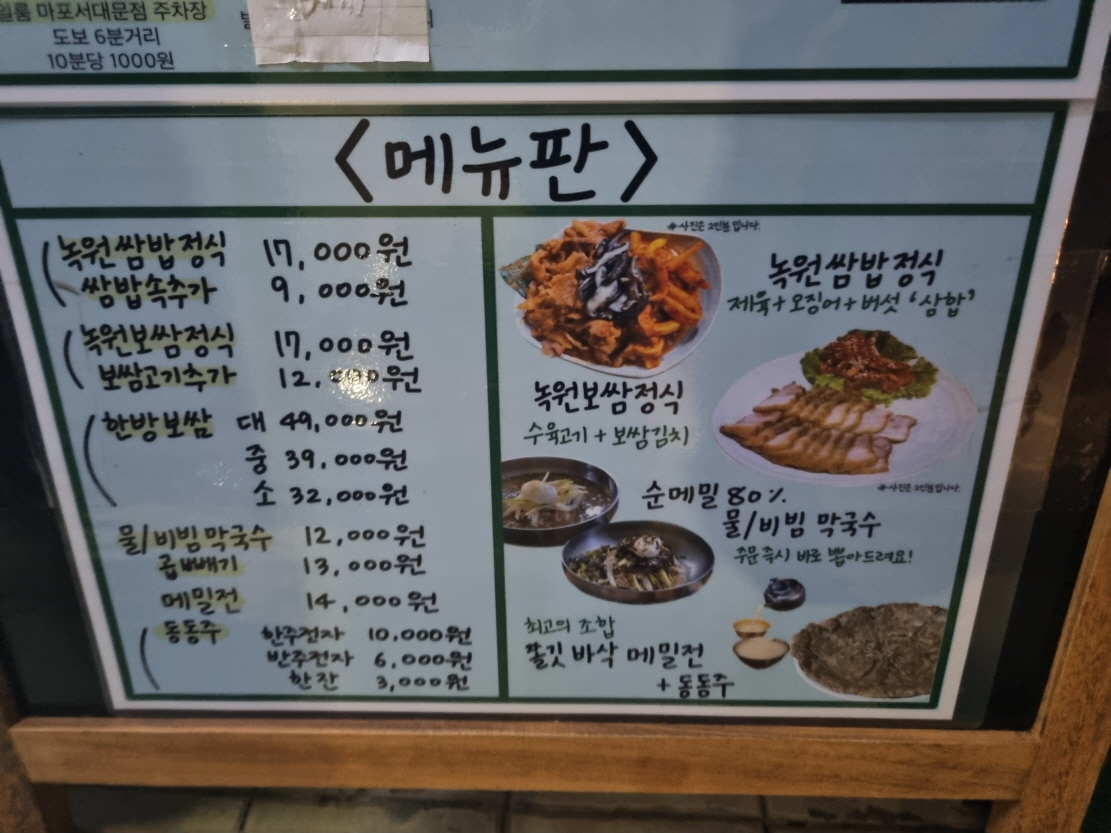 월룸 마포서대문점 주차장
도보 6분거리
10분당 1000원
<메뉴판>
녹원쌈밥정식 17,000원
쌈밥속추가 9,000원
녹원보쌈정식 17,000원
보쌈고기추가 12,000원
한방보쌈 대 49,000원
중 39,000원
소 32,000원
물/비빔막국수 12,000원
곱빼기 13,000원
메밀전 14,000원
동동주 한주전자 10,000원
반주전자 6,000원
한잔 3,000원
※사진은 2인분입니다.
녹원쌈밥정식
제육+오징어+버섯 '삼합'
녹원보쌈정식
수육고기 + 보쌈김치
※사진은 2인분입니다.
순메밀 80%
물/비빔 막국수
주문 즉시 바로 뽑아드려요!
최고의 조합
쫄깃 바삭 메밀전
+ 동동주